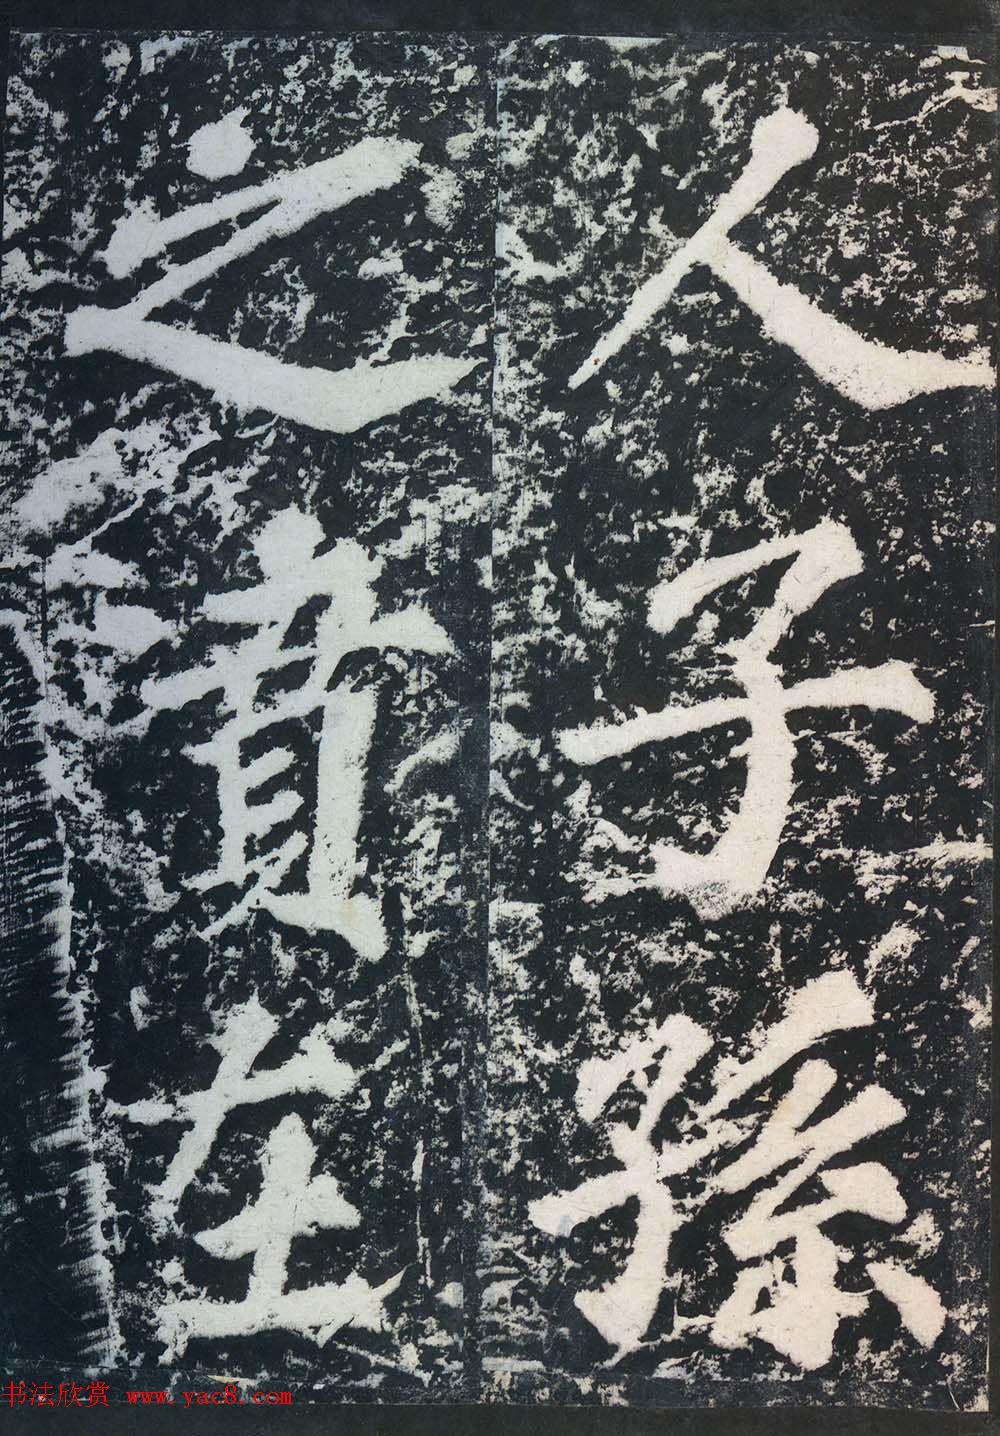 人子孫
之貴在
书法欣赏 www.yac8.com